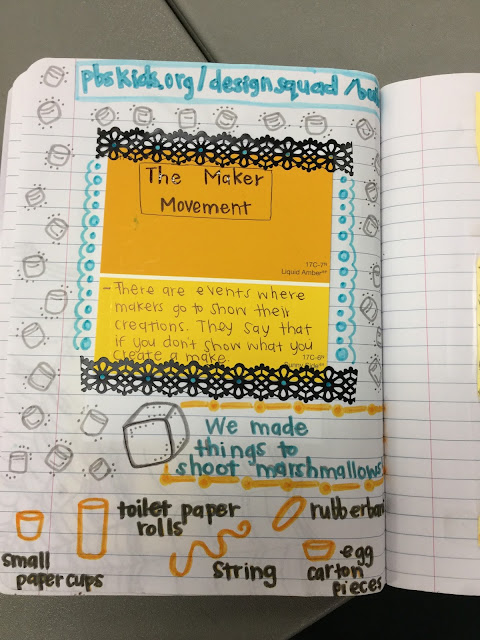 pbskids.org/designsquad/
The Maker
Movement
17C-7ᴺ
Liquid Amber
- There are events where
makers go to show their
creations. They say that
if you don't show what you
create a make.
17C-6ᴺ
We made
things to
shoot marshmallows
toilet paper
rolls
small
paper cups
string
egg
carton
pieces